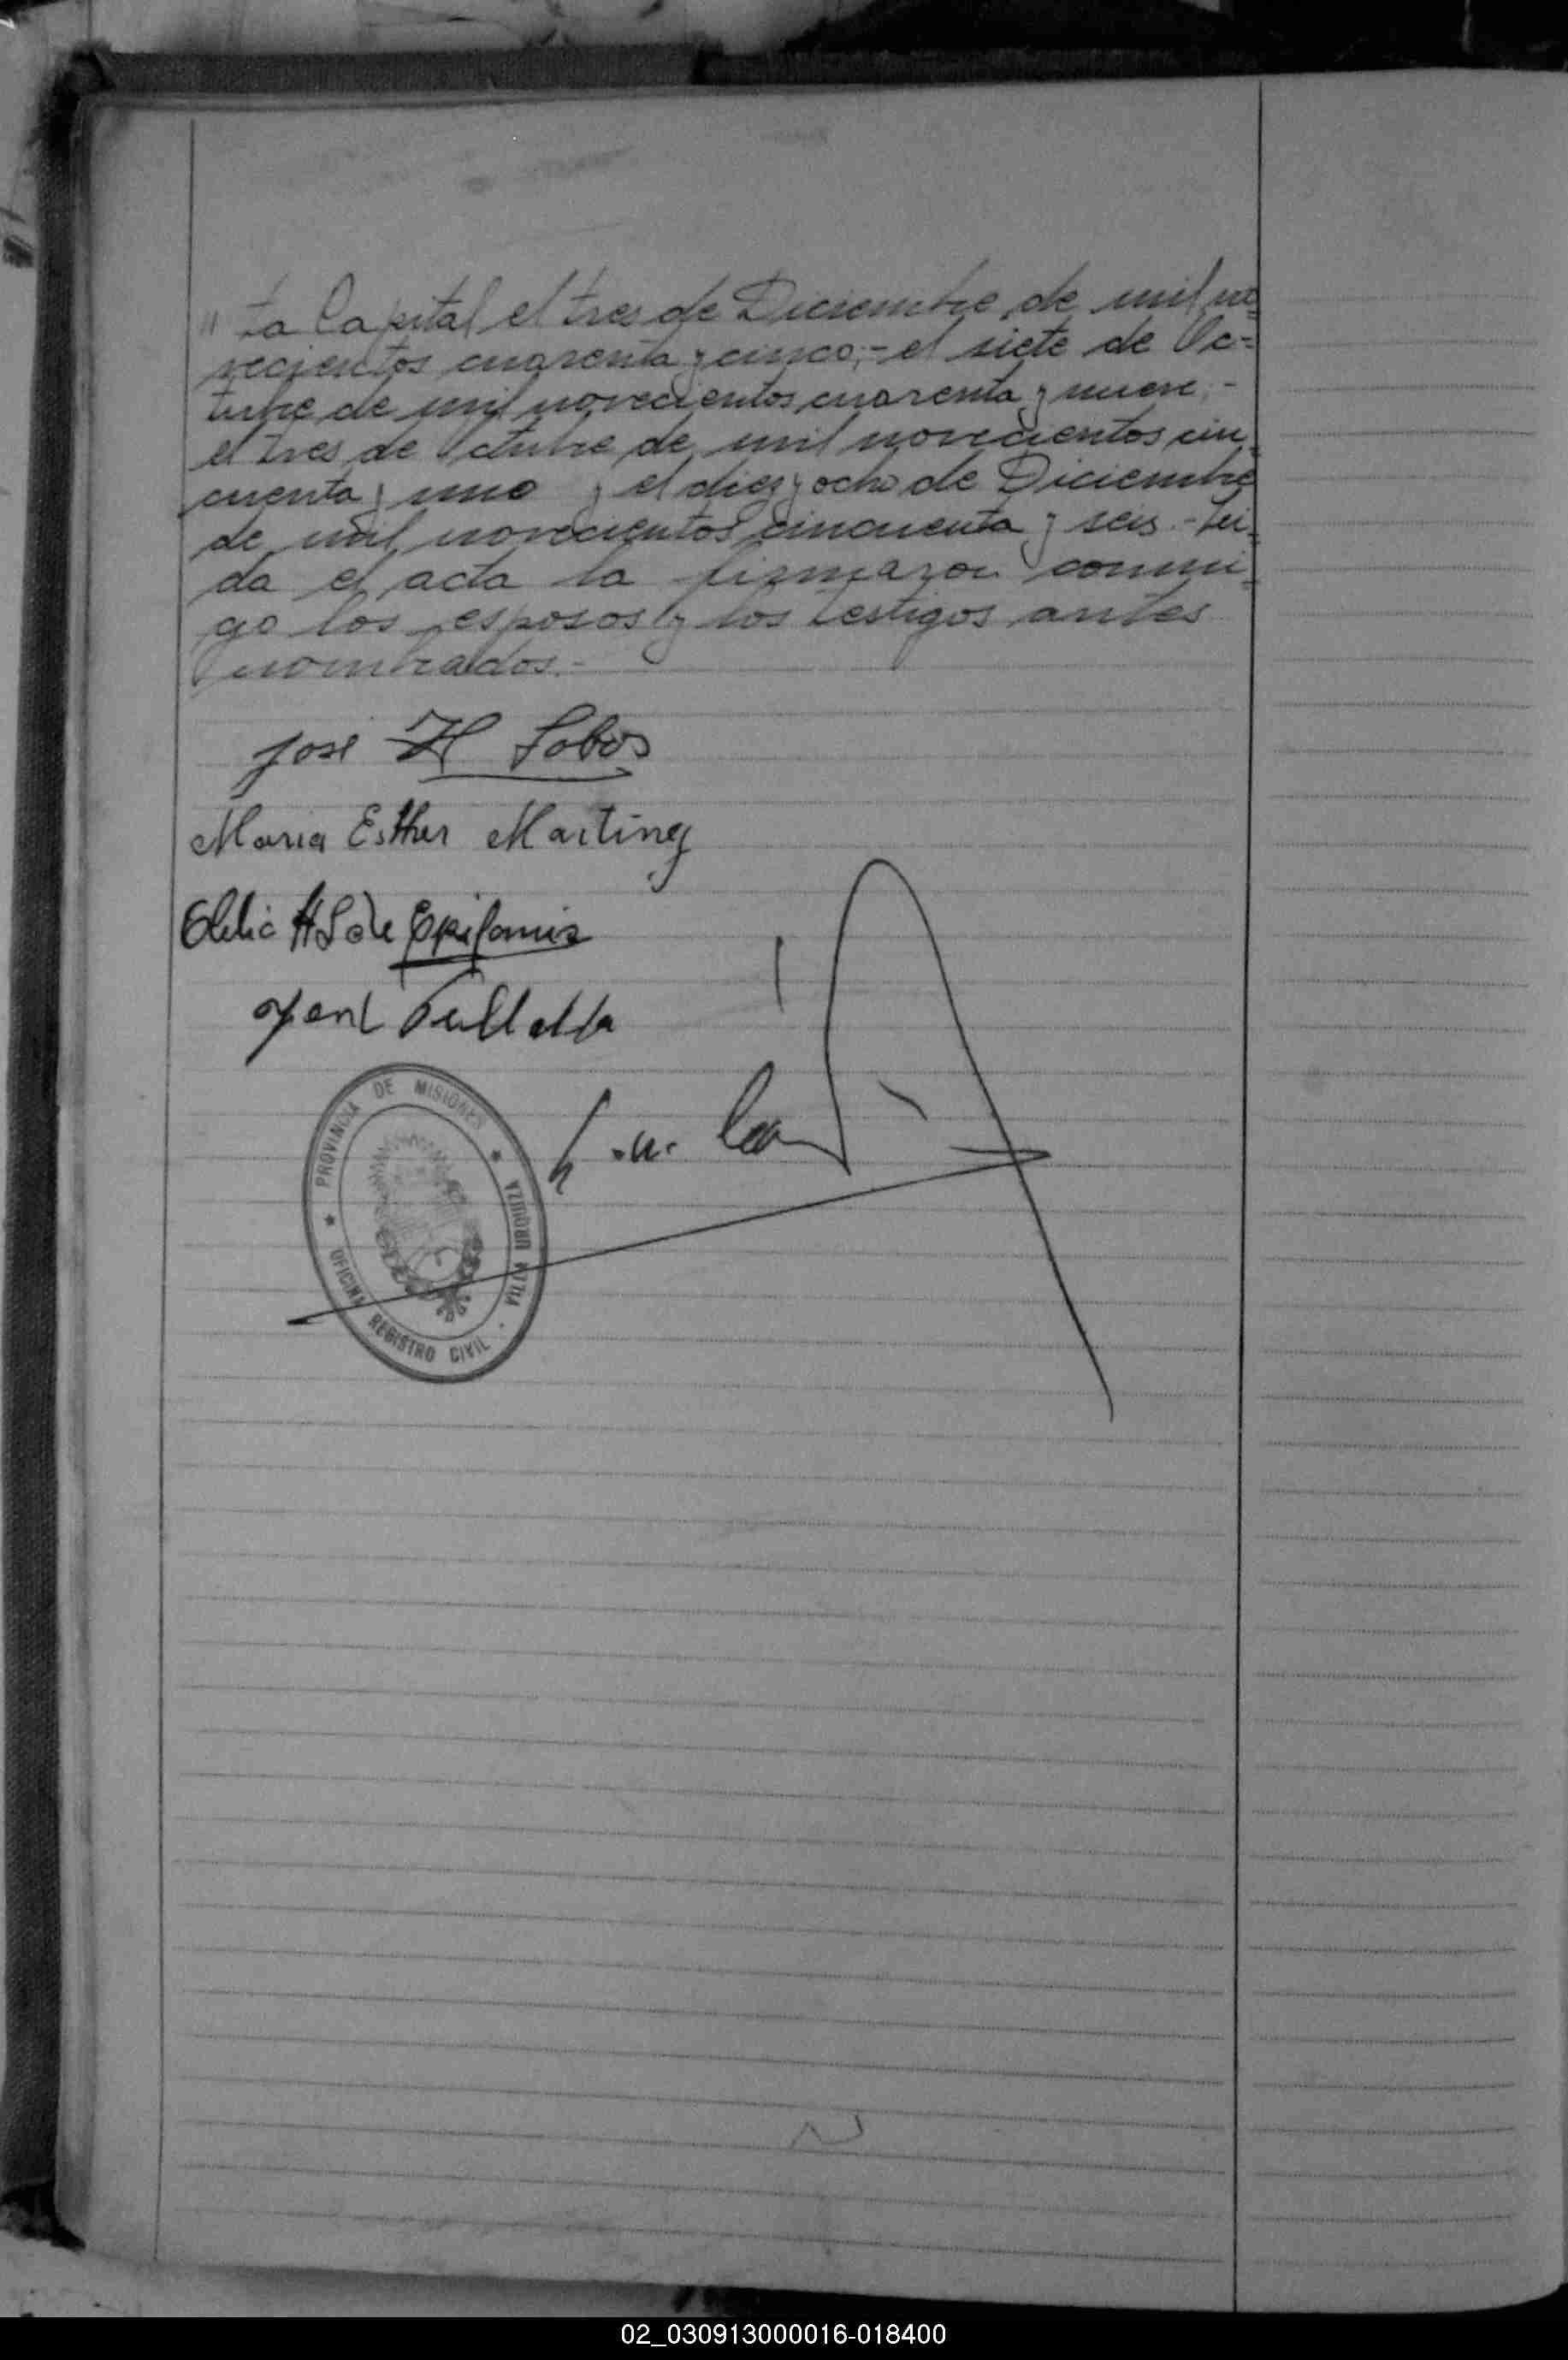 " ta Capital el tres de Diciembre de mil no=
vecientos cuarenta y cinco;- el siete de Oc=
tubre de mil novecientos cuarenta y nueve;-
el tres de Octubre de mil novecientos cin=
cuenta y uno y el diez y ocho de Diciembre
de mil novecientos cincuenta y seis.- Lei=
da el acta la firmaron conmi=
go los esposos y los testigos antes
nombrados.-
José H Lobos
Maria Esther Martinez
de Epifanio
PROVINCIA DE MISIONES
OFICINA REGISTRO CIVIL · VILLA URQUIZA
02_030913000016-018400